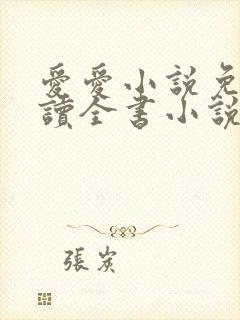 愛愛小說免
讀全書小說
張炭